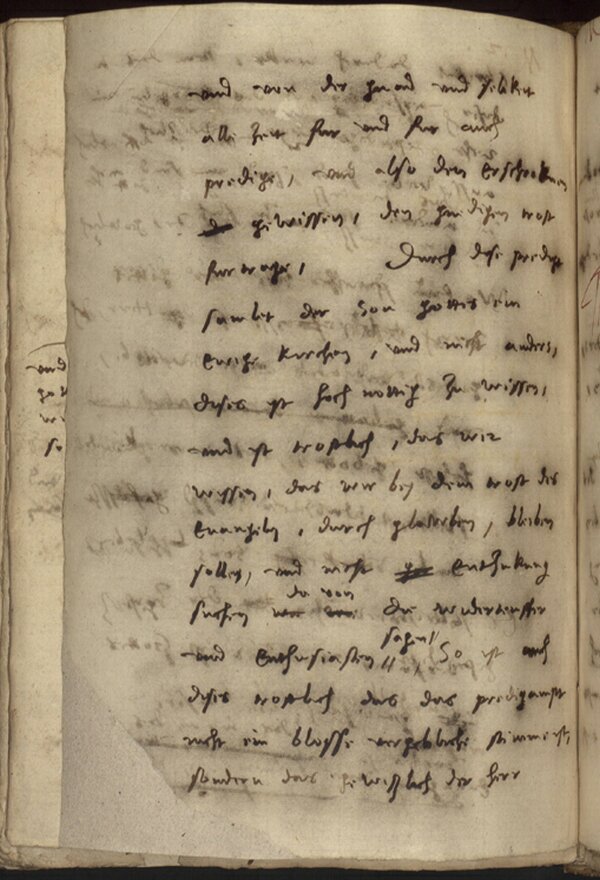 und von der gnad und seliket
alle Zeit fur und fur auch
predige, und also den erschroknen
gewissen, den gnedigen trost
furtrage, Durch dise predigt
samlet der Son gottis ein
ewige kirchen, und nicht anders,
dises ist hoch nottig zu wissen,
und ist trostlich, das wir
wissen, das wir bey dem trost des
evangelij, durch glawben, bleiben
sollen, und nicht entzukung
da von
suchen die widerteuffer
sagen//
und Enthusiasten //, So ist auch
dises trostlich das das predigampt
nicht ein blosse vergebliche stimme ist,
sondern das gewißlich der herr
und
so